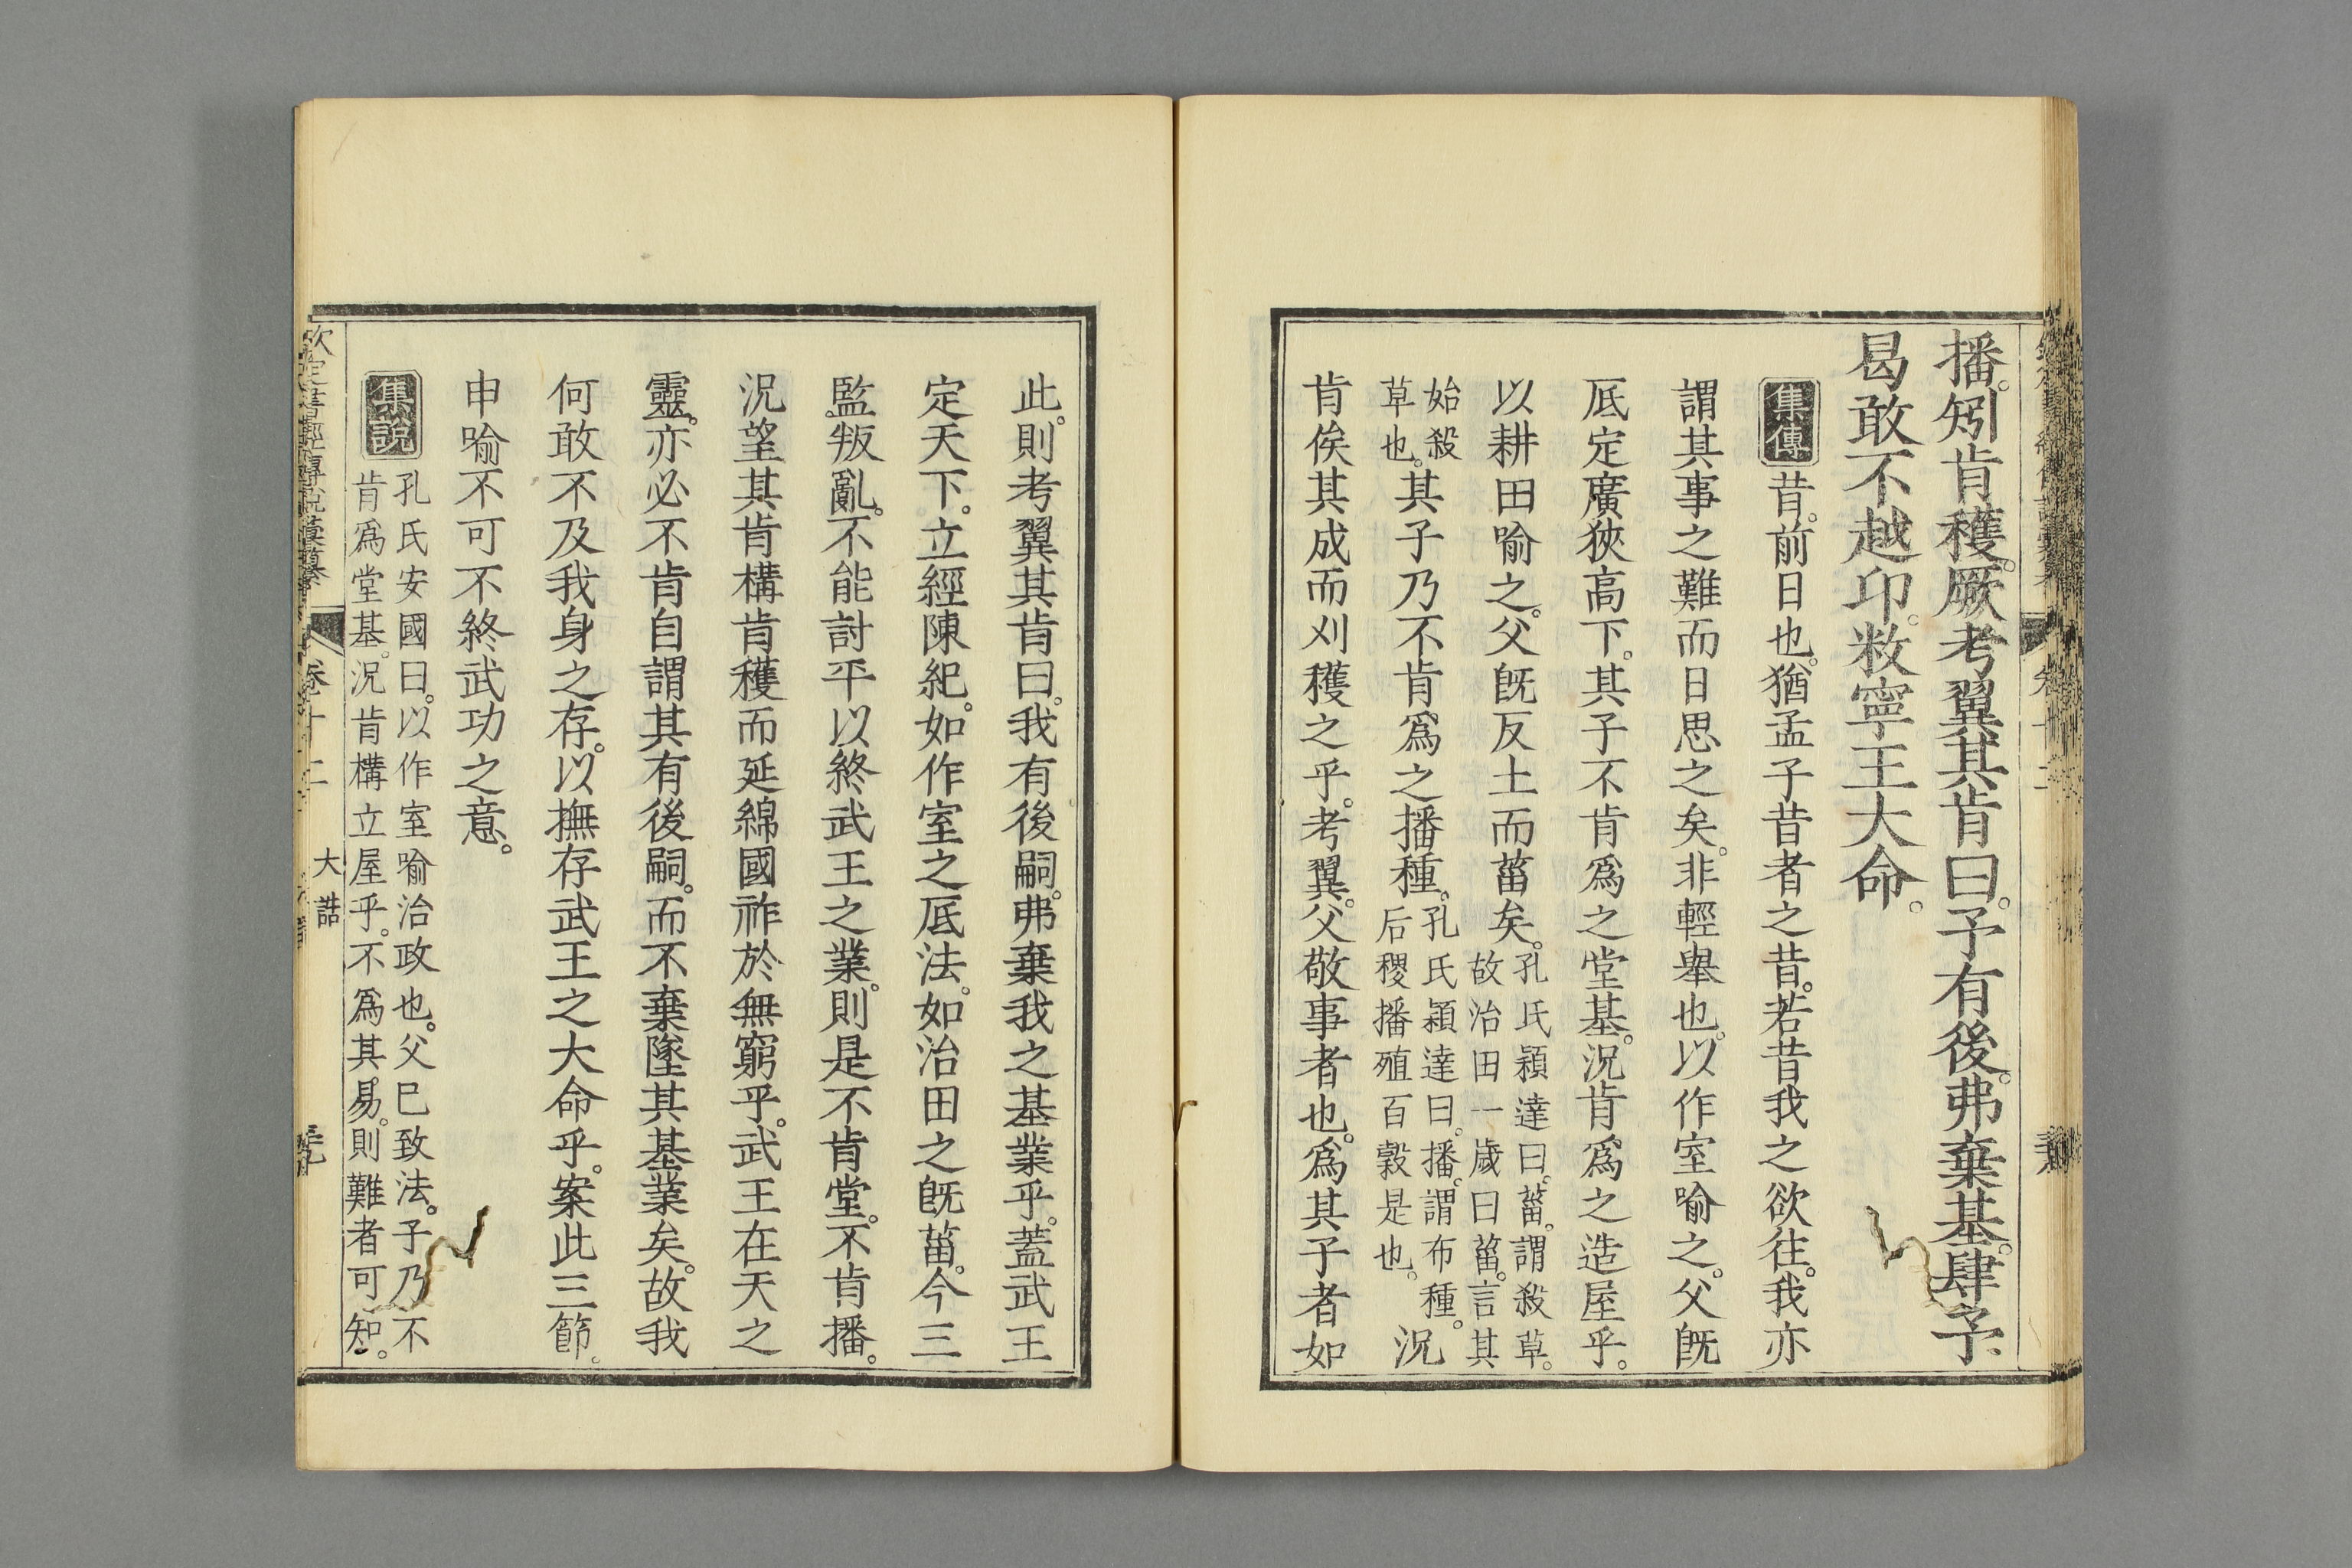 播。矧肯穫。厥考翼其肯曰。予有後。弗棄基。肆予
曷敢不越卬。敉寧王大命。
集傳 昔。前日也。猶孟子昔者之昔。若昔我之欲往。我亦
謂其事之難而日思之矣。非輕舉也。以作室喻之。父旣
底定廣狹高下。其子不肯爲之堂基。況肯爲之造屋乎。
以耕田喻之。父旣反土而菑矣。孔氏穎達曰。菑。謂殺草。故治田一歲曰菑。言其
始殺草也。其子乃不肯爲之播種。孔氏穎達曰。播。謂布種。后稷播殖百穀是也。況
肯俟其成而刈穫之乎。考翼。父敬事者也。爲其子者如
此。則考翼其肯曰。我有後嗣。弗棄我之基業乎。蓋武王
定天下。立經陳紀。如作室之底法。如治田之旣菑。今三
監叛亂。不能討平以終武王之業。則是不肯堂。不肯播。
況望其肯構肯穫而延綿國祚於無窮乎。武王在天之
靈。亦必不肯自謂其有後嗣。而不棄墜其基業矣。故我
何敢不及我身之存。以撫存武王之大命乎。案此三節。
申喻不可不終武功之意。
集說 孔氏安國曰。以作室喻治政也。父已致法。子乃不
肯爲堂基。況肯構立屋乎。不爲其易。則難者可知。
欽定書經傳說彙纂 卷十二 大誥